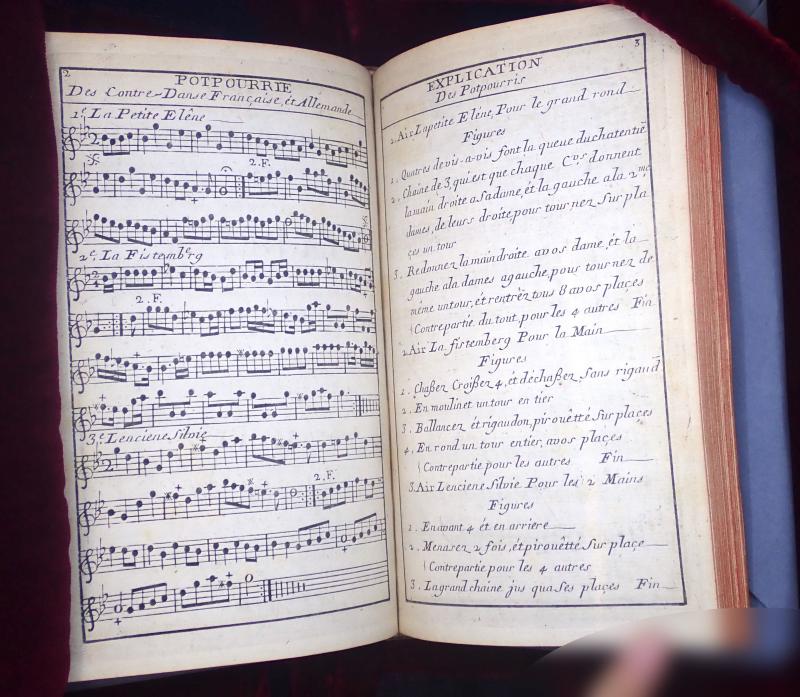 2
POTPOURRIE
Des Contre-Danse Française, ét Allemande
1.r La Petite Elêne
2. F.
2.e La Fistemberg
2. F.
3.e Lenciene Silvie
2. F.
3
EXPLICATION
Des Potpourris
1. Air Lapetite Eléne, Pour le grand rond
Figures
1. Quatres de vis-a-vis font la queue du chat entiē
2. Chaine de 3, qui est que chaque C.vs donnent
la main droite a sa dame, ét la gauche a la 2.me
dames, de leurs droite, pour tour nez Sur pla
çes un tour
3. Redonnez la main droite avos dame, ét la
gauche ala dames agauche, pour tournez de
même un tour, ét rentrèz tous 8 avos plaçes
Contrepartie du tout, pour les 4 autres Fin
2. Air La firtemberg Pour la Main
Figures
1. Chaßez Croißez 4, ét déchaßez, Sans rigaud
2. En moulinet un tour en tier
3. Ballancez ét rigaudon, pirouétté Sur plaçes
4. En rond un tour entier, avos plaçes
Contrepartie pour les autres Fin
3. Air Lenciene Silvie Pour les 2 Mains
Figures
1. En avant 4 ét en arriere
2. Menasez 2 fois, ét pirouétté Sur plaçe
Contrepartie pour les 4 autres
3. La grand chaine jus qua Ses plaçes Fin